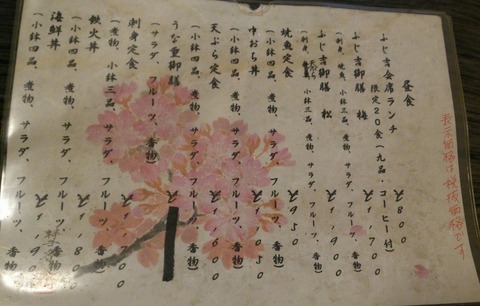 昼食
ふじ吉会席ランチ
限定20食(九品・コーヒー付)
¥800
ふじ吉御膳 梅
(刺身、焼魚、小鉢三品、煮物、サラダ、フルーツ、香物)
¥1,700
ふじ吉御膳 松
¥1,900
焼魚定食
(小鉢四品、煮物、サラダ、フルーツ、香物)
¥950
中おち丼
(小鉢四品、煮物、サラダ、フルーツ、香物)
天ぷら定食
(小鉢四品、煮物、サラダ、フルーツ、香物)
¥1,600
うな重御膳
(サラダ、フルーツ、香物)
刺身定食
(煮物、小鉢三品、サラダ、フルーツ、香物)
鉄火丼
(小鉢四品、煮物、サラダ、フルーツ、香物)
海鮮丼
(小鉢四品、煮物、サラダ、フルーツ、香物)
表示価格は税抜価格です